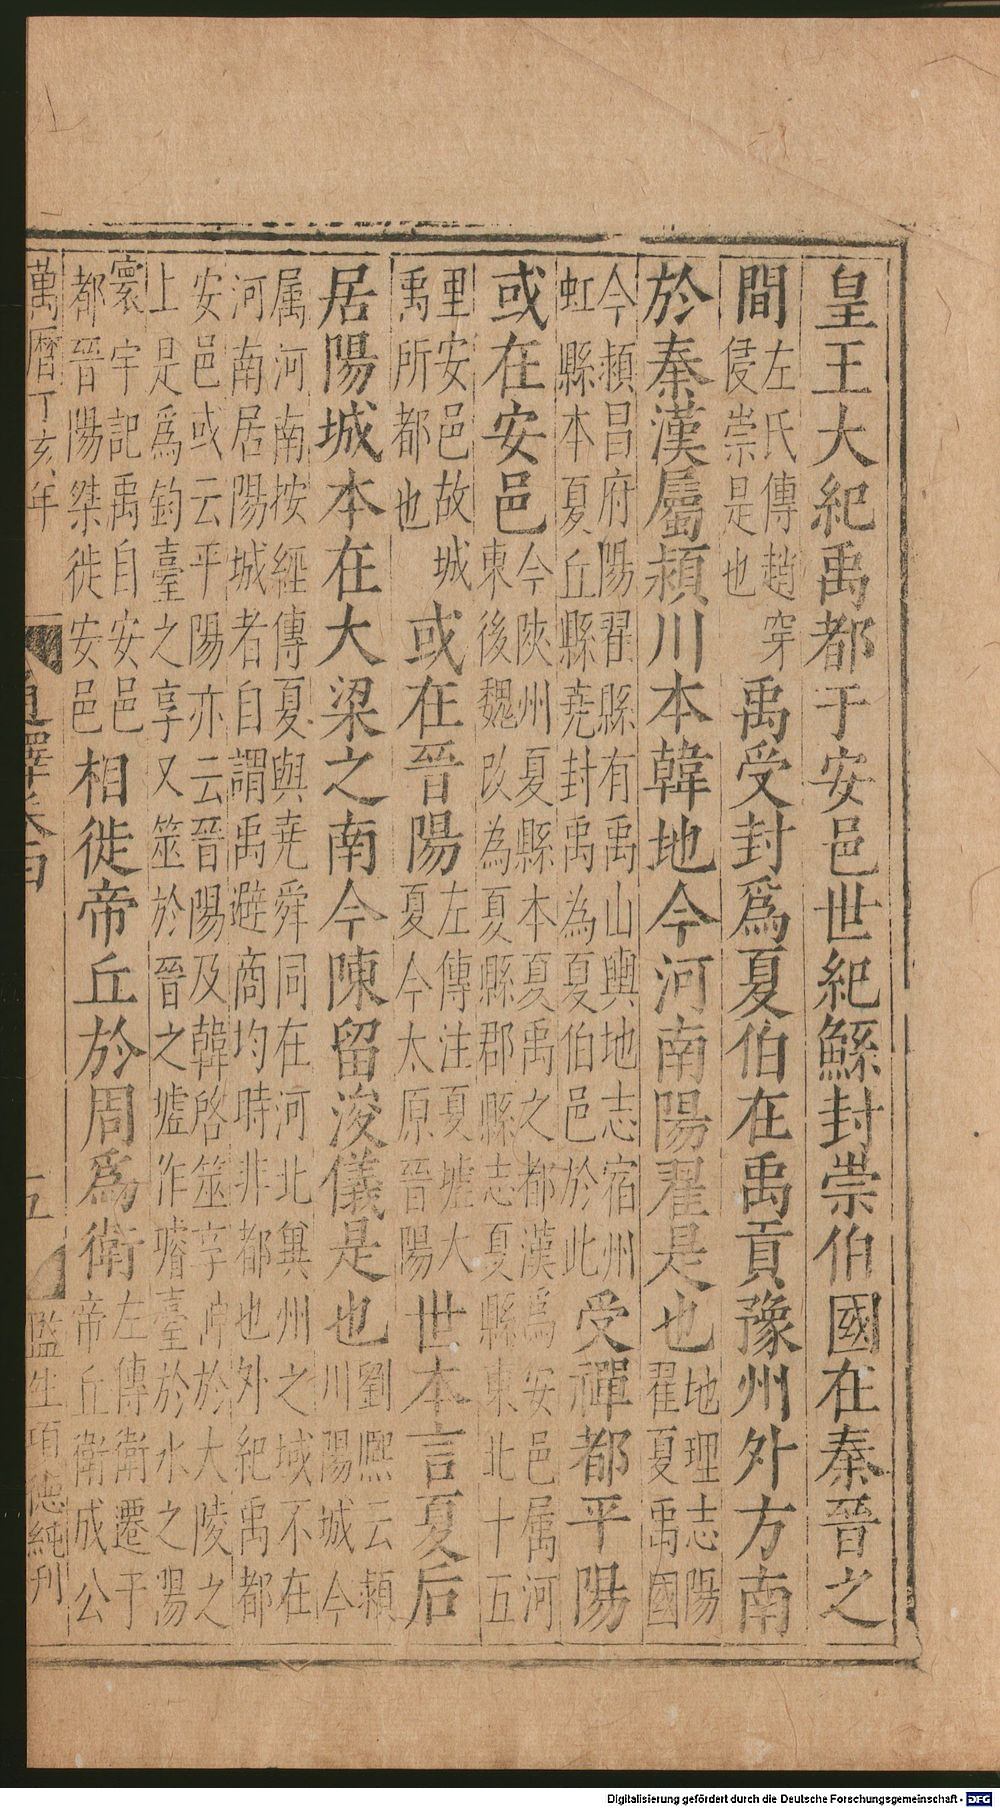 皇王大紀禹都于安邑世紀鯀封崇伯國在秦晉之
間左氏傳趙穿侵崇是也禹受封爲夏伯在禹貢豫州外方南
於秦漢屬潁川本韓地今河南陽翟是也地理志陽翟夏禹國
今潁昌府陽翟縣有禹山輿地志宿州虹縣本夏丘縣堯封禹為夏伯邑於此受禪都平陽
或在安邑今陝州夏縣本夏禹之都漢爲安邑属河東後魏改為夏縣郡縣志夏縣東北十五
里安邑故城禹所都也或在晉陽左傳注夏墟大夏今太原晉陽世本言夏后
居陽城本在大梁之南今陳留浚儀是也劉熙云潁川陽城今
属河南按經傳夏與堯舜同在河北冀州之域不在河南居陽城者自謂禹避商均時非都也外紀禹都
安邑或云平陽亦云晉陽及韓啓筮享神於大陵之上是爲鈞臺之享又筮於晉之墟作璿臺於水之陽
寰宇記禹自安邑都晉陽桀徙安邑相徙帝丘於周爲衛左傳衛遷于帝丘衛成公
萬曆丁亥年
五
監生項德純刊
Digitalisierung gefördert durch die Deutsche Forschungsgemeinschaft - DFG